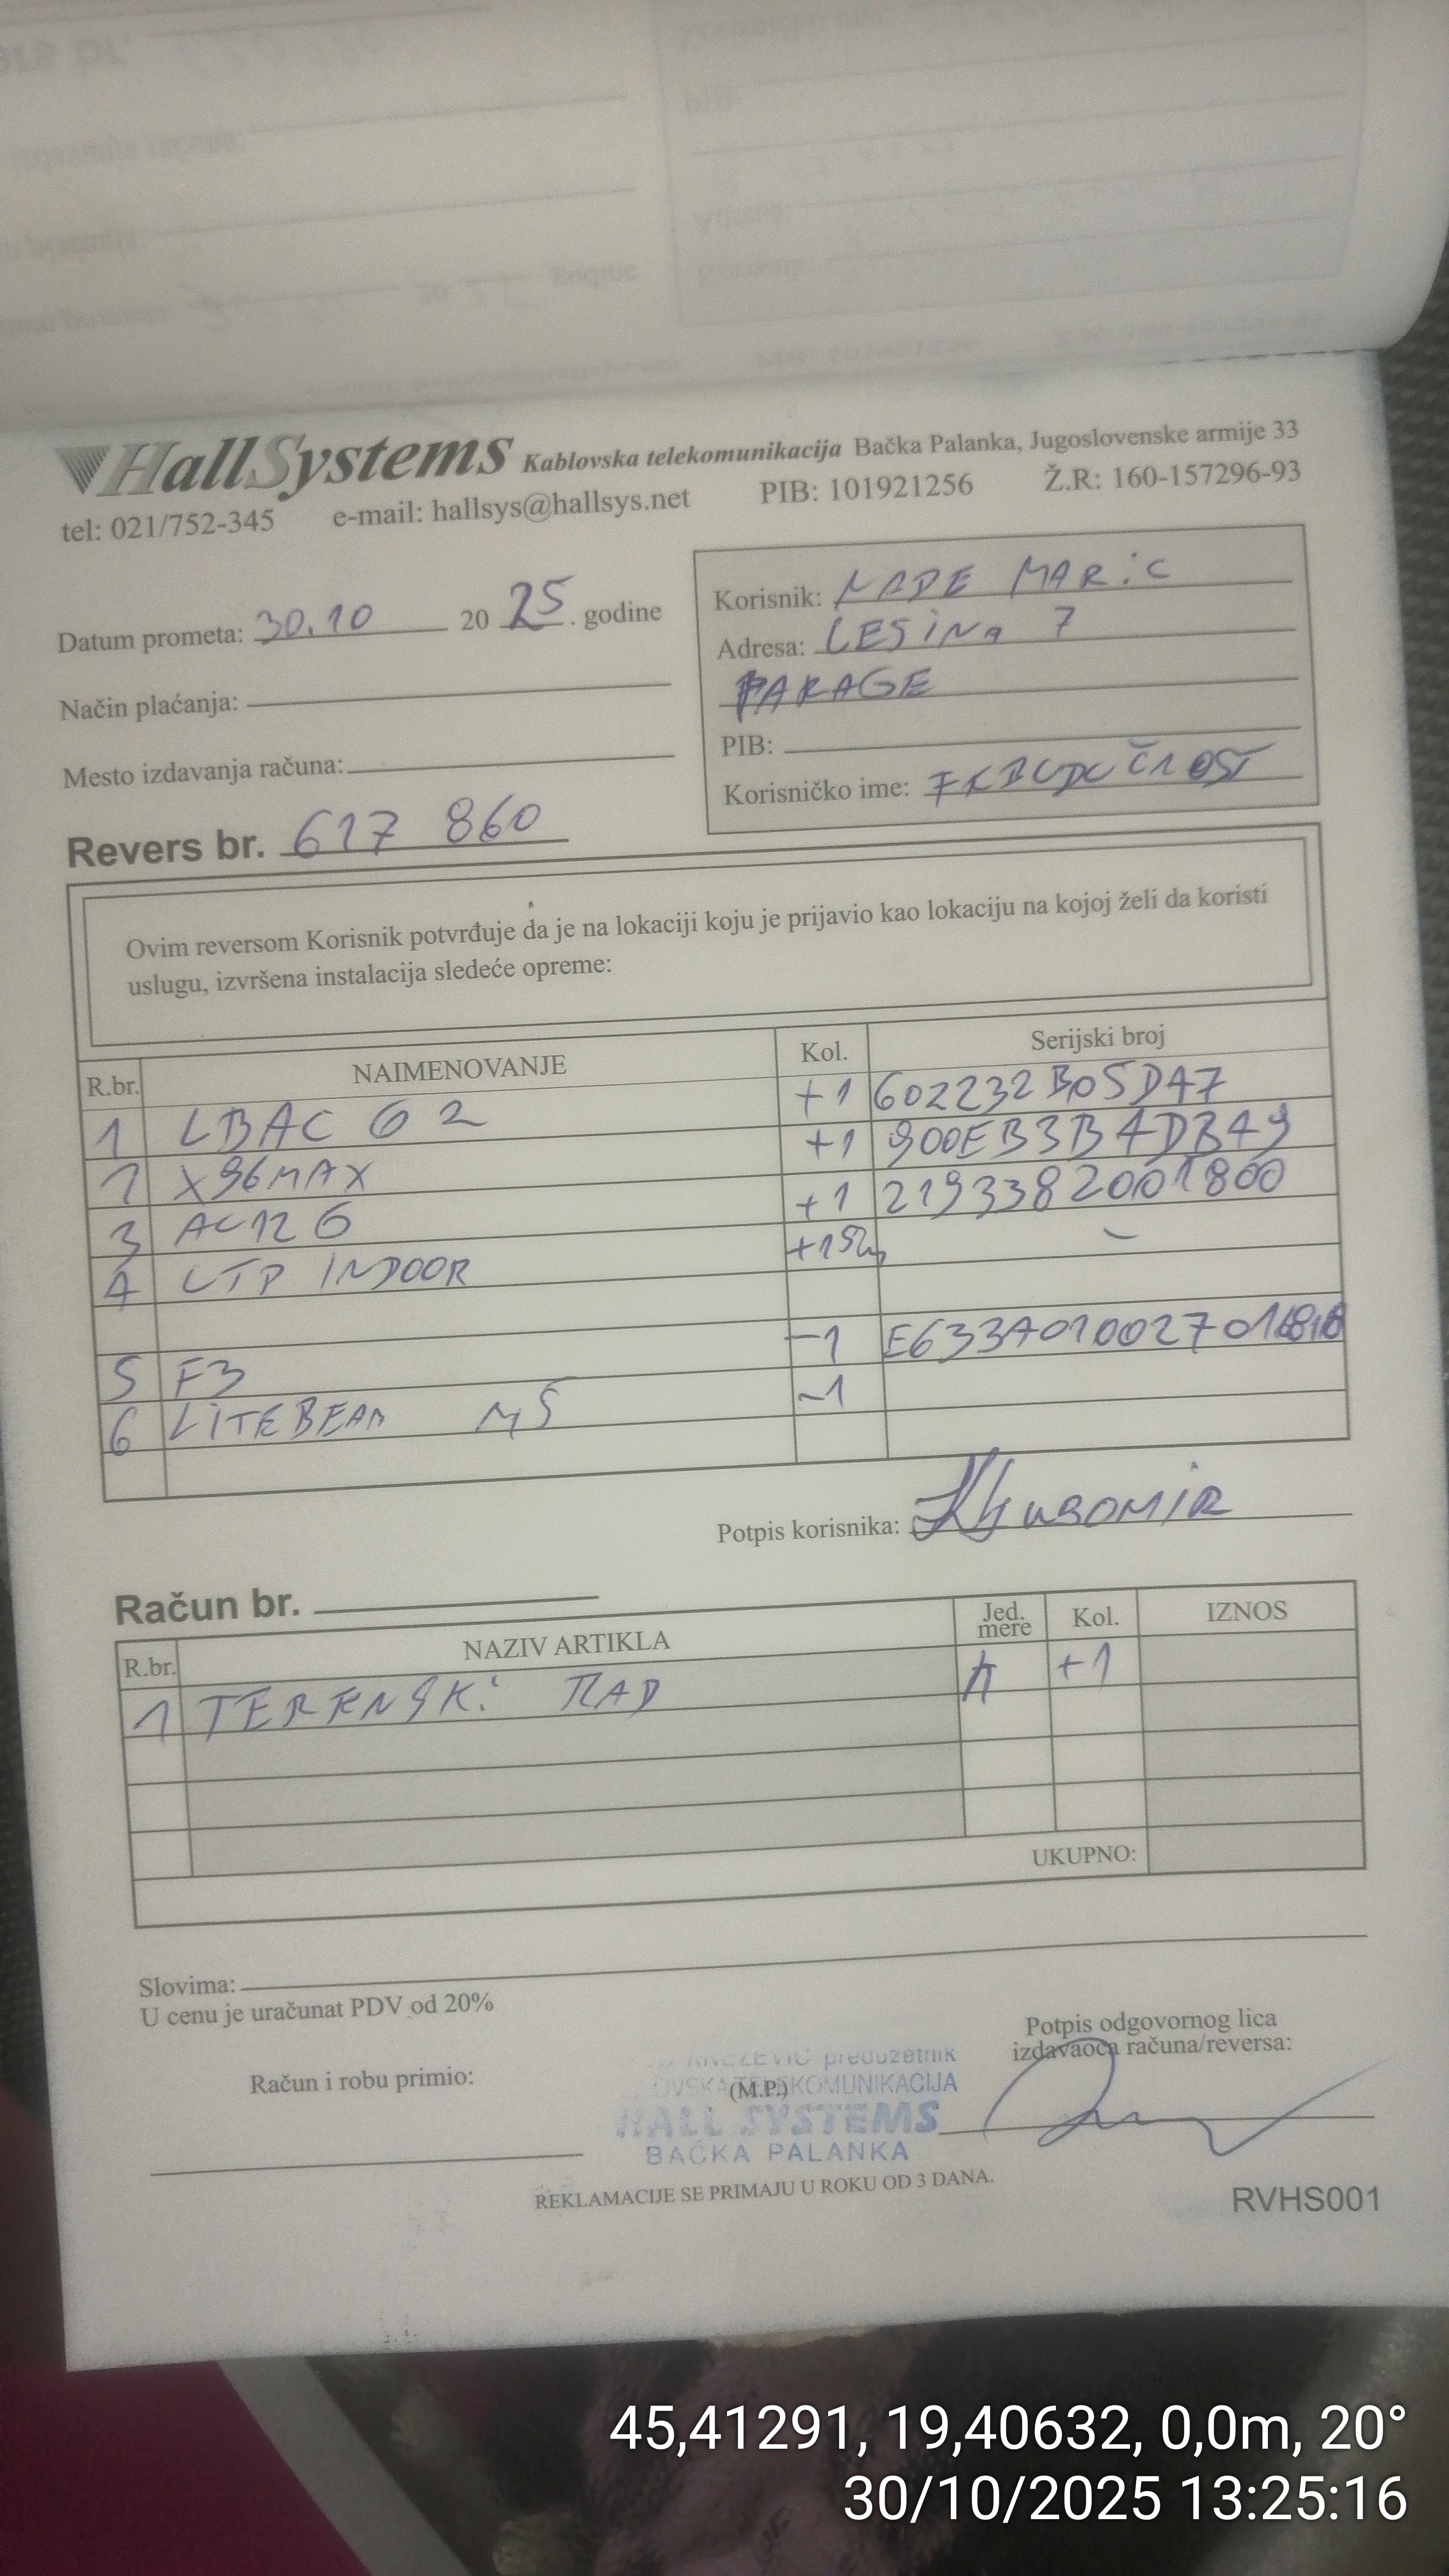 HallSystems Kablovska telekomunikacija Bačka Palanka, Jugoslovenske armije 33
tel: 021/752-345 e-mail: hallsys@hallsys.net PIB: 101921256 Ž.R: 160-157296-93
Datum prometa: 30.10 20 25. godine
Način plaćanja:
Mesto izdavanja računa:
Revers br. 617 860
Korisnik: MARiC
Adresa: LESiNa 7
PARAGE
PIB:
Korisničko ime:
Ovim reversom Korisnik potvrđuje da je na lokaciji koju je prijavio kao lokaciju na kojoj želi da koristi
uslugu, izvršena instalacija sledeće opreme:
R.br. NAIMENOVANJE Kol. Serijski broj
1 LBAC G2 +1 602232B05D47
2 X96MAX +1 900EB3B4DB49
3 AC12G +1 2193382001800
4 UTP INDOOR +15m –
5 F3 -1
6 LITEBEAM M5 -1
Potpis korisnika: LJUBOMIR
Račun br.
R.br. NAZIV ARTIKLA Jed. mere Kol. IZNOS
1 TERENSKi RAD h +1
UKUPNO:
Slovima:
U cenu je uračunat PDV od 20%
Račun i robu primio:
Potpis odgovornog lica
izdavaoca računa/reversa:
KNEZEVIĆ preduzetnik
TELEKOMUNIKACIJA
(M.P.)
HALL SYSTEMS
BAČKA PALANKA
REKLAMACIJE SE PRIMAJU U ROKU OD 3 DANA.
RVHS001
45,41291, 19,40632, 0,0m, 20°
30/10/2025 13:25:16